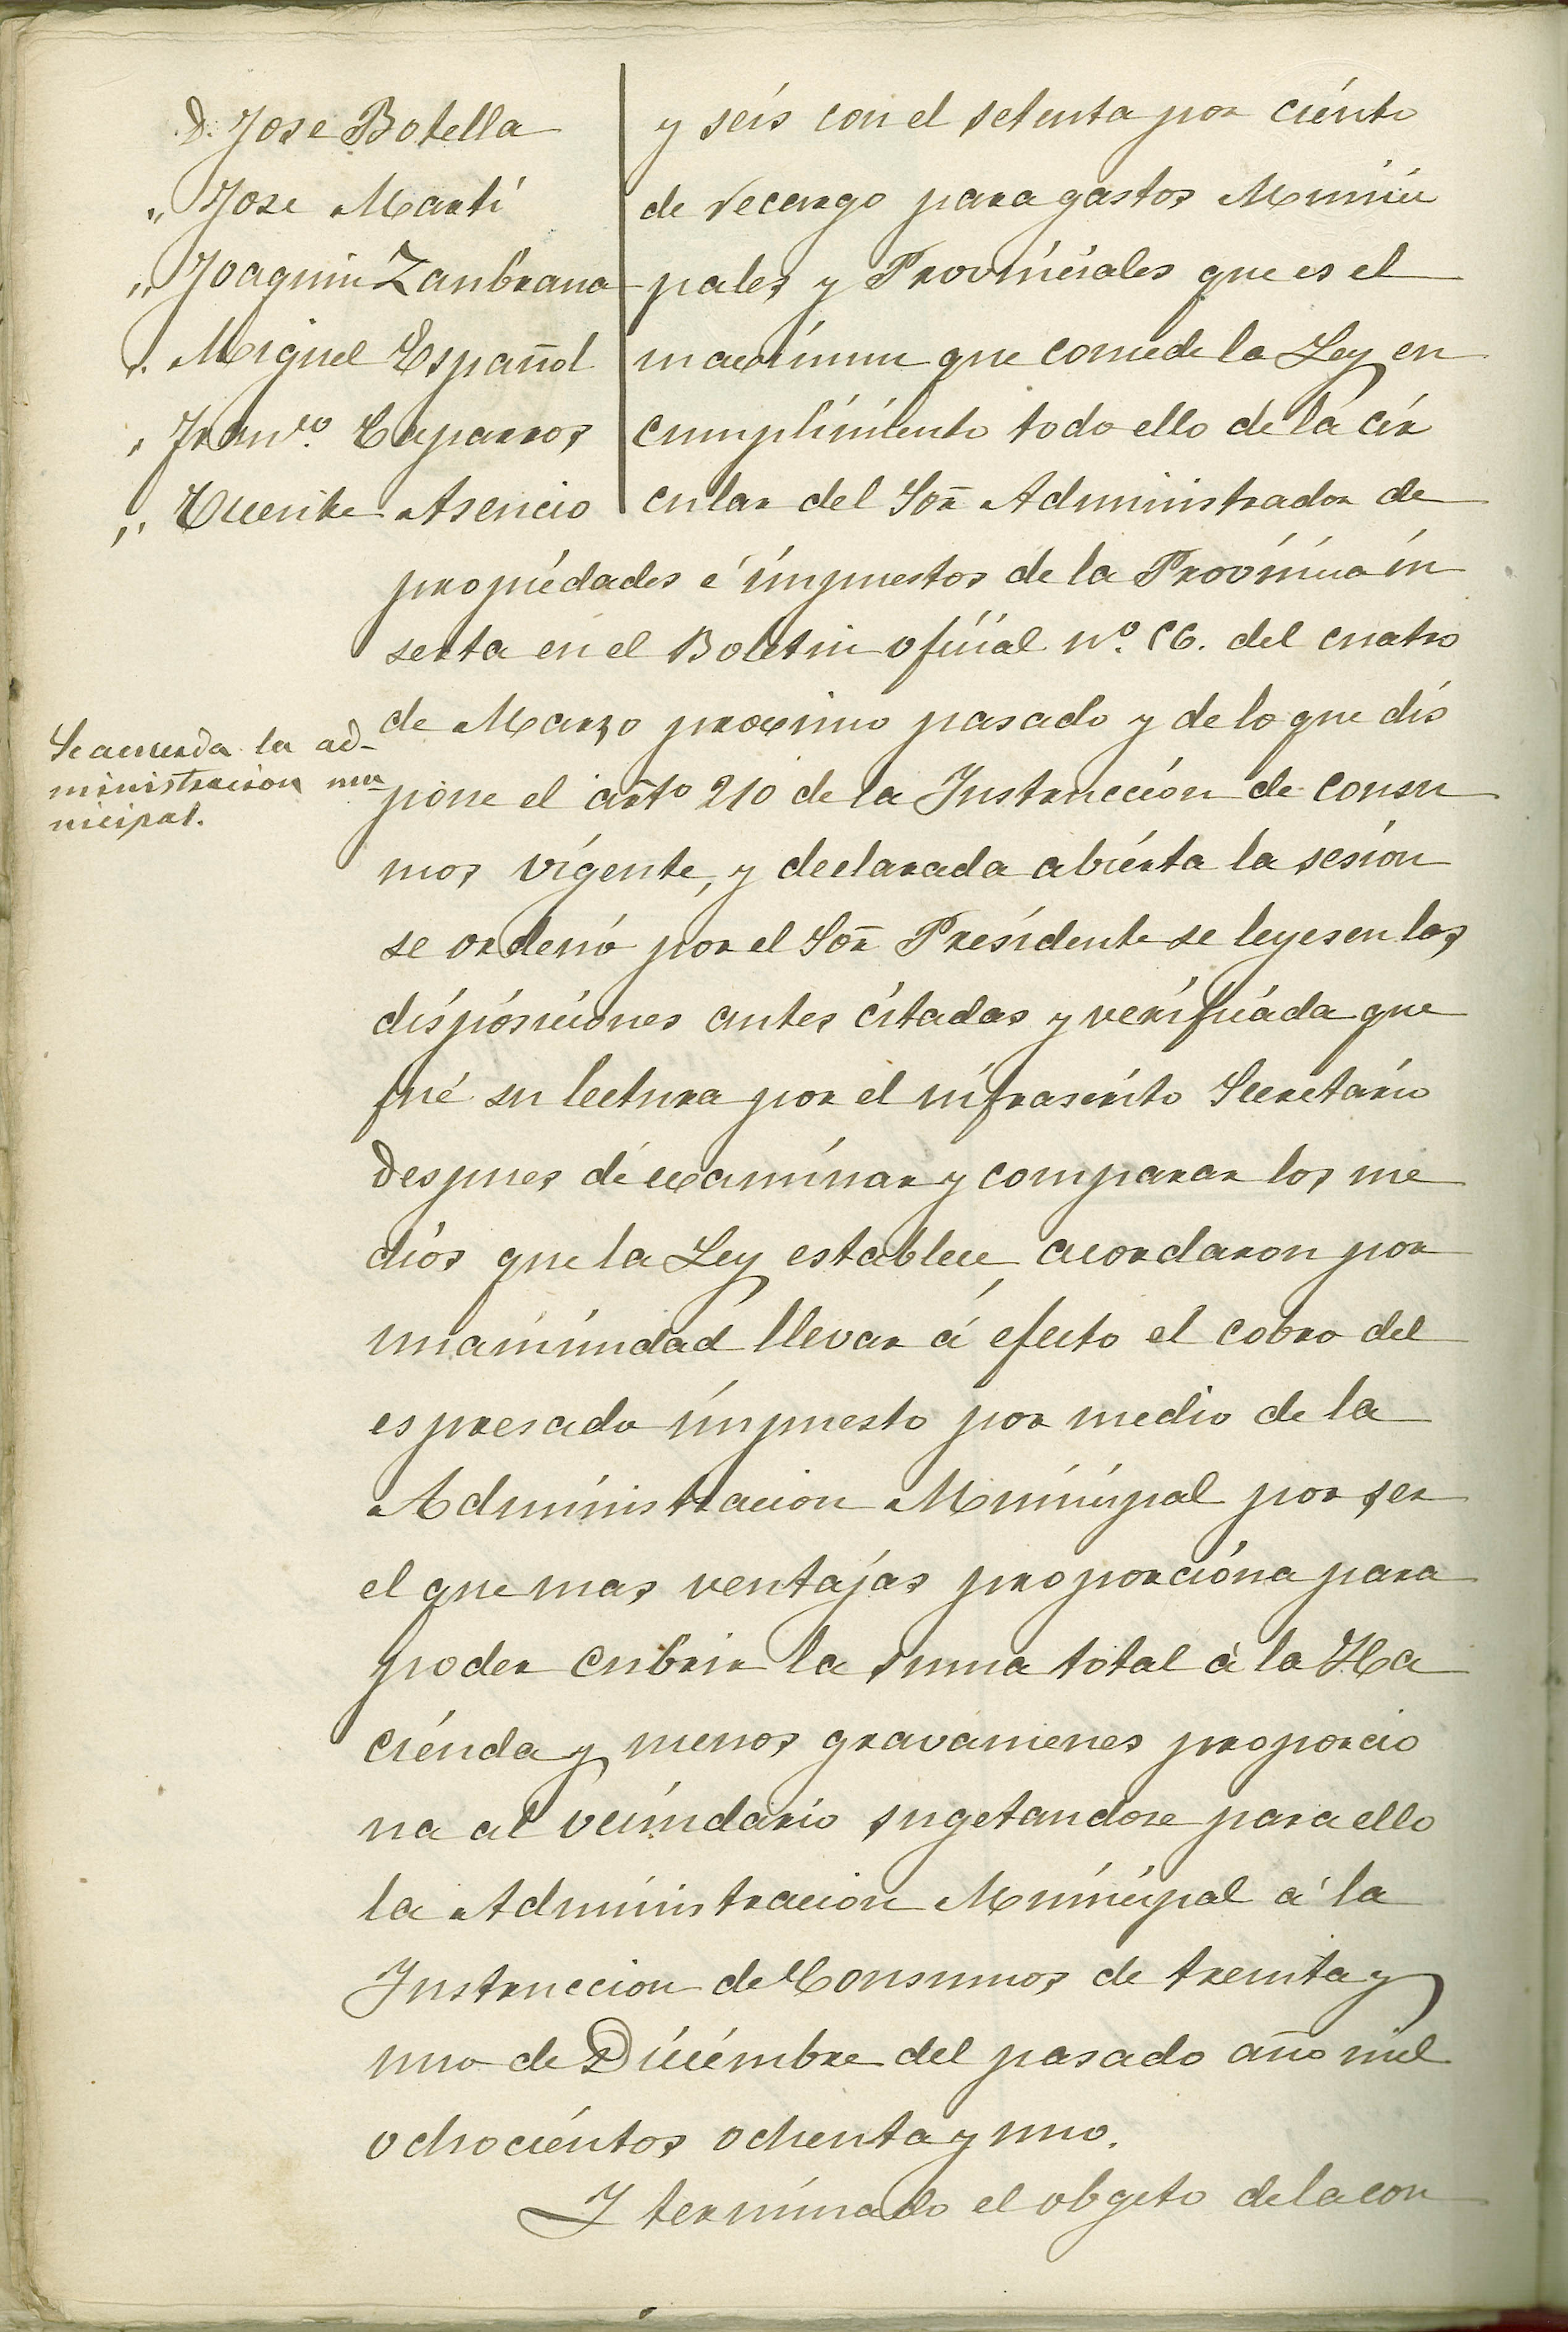 D. Jose Botella
" Jose Marti
" Joaquin Zanbrana
" Miguel Español
" Franco. Caparros
" Vicente Asencio
y seis con el setenta por ciento
de recargo para gastos Munici
pales y Provinciales que es el
maximun que concede la Ley en
cumplimiento todo ello de la cir
cular del Sor Administrador de
propiedades é impuestos de la Provincia in
serta en el Boletin oficial nº. 56. del cuatro
de Marzo proximo pasado y de lo que dis
Se acuerda la ad-
ministracion mu
nicipal.
pone el arto 210 de la Instrucción de consu
mos vigente, y declarada abierta la sesión
se ordenó por el Sor Presidente se leyesen las
disposiciones antes citadas y verificada que
fué su lectura por el infrascrito Secretario
Despues de examinar y comparar los me
dios que la Ley establece, acordaron por
unanimidad llevar á efecto el cobro del
espresado impuesto por medio de la
Administracion Municipal por ser
el que mas ventajas proporciona para
poder cubrir la suma total á la Ha
cienda y menos gravamenes proporcio
na al vecindario sugetandose para ello
la Administracion Municipal á la
Instruccion de Consumos de treinta y
uno de Diciembre del pasado año mil
ochocientos ochenta y uno.
Y terminado el obgeto de la con